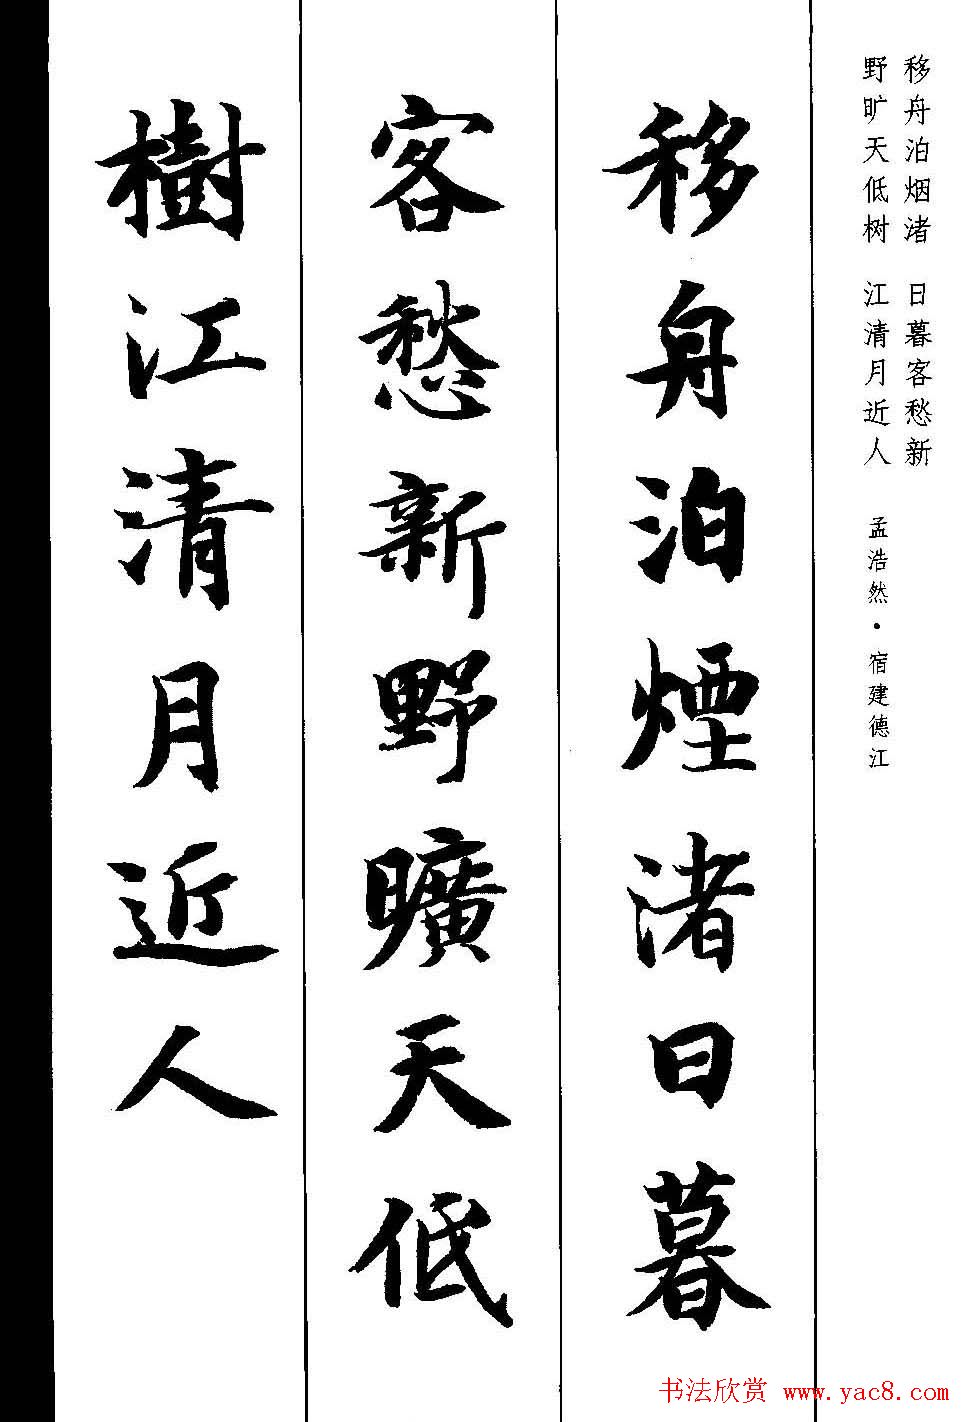 移舟泊烟渚 日暮客愁新
野旷天低树 江清月近人
孟浩然·宿建德江
移舟泊煙渚日暮
客愁新野曠天低
樹江清月近人
书法欣赏 www.yac8.com